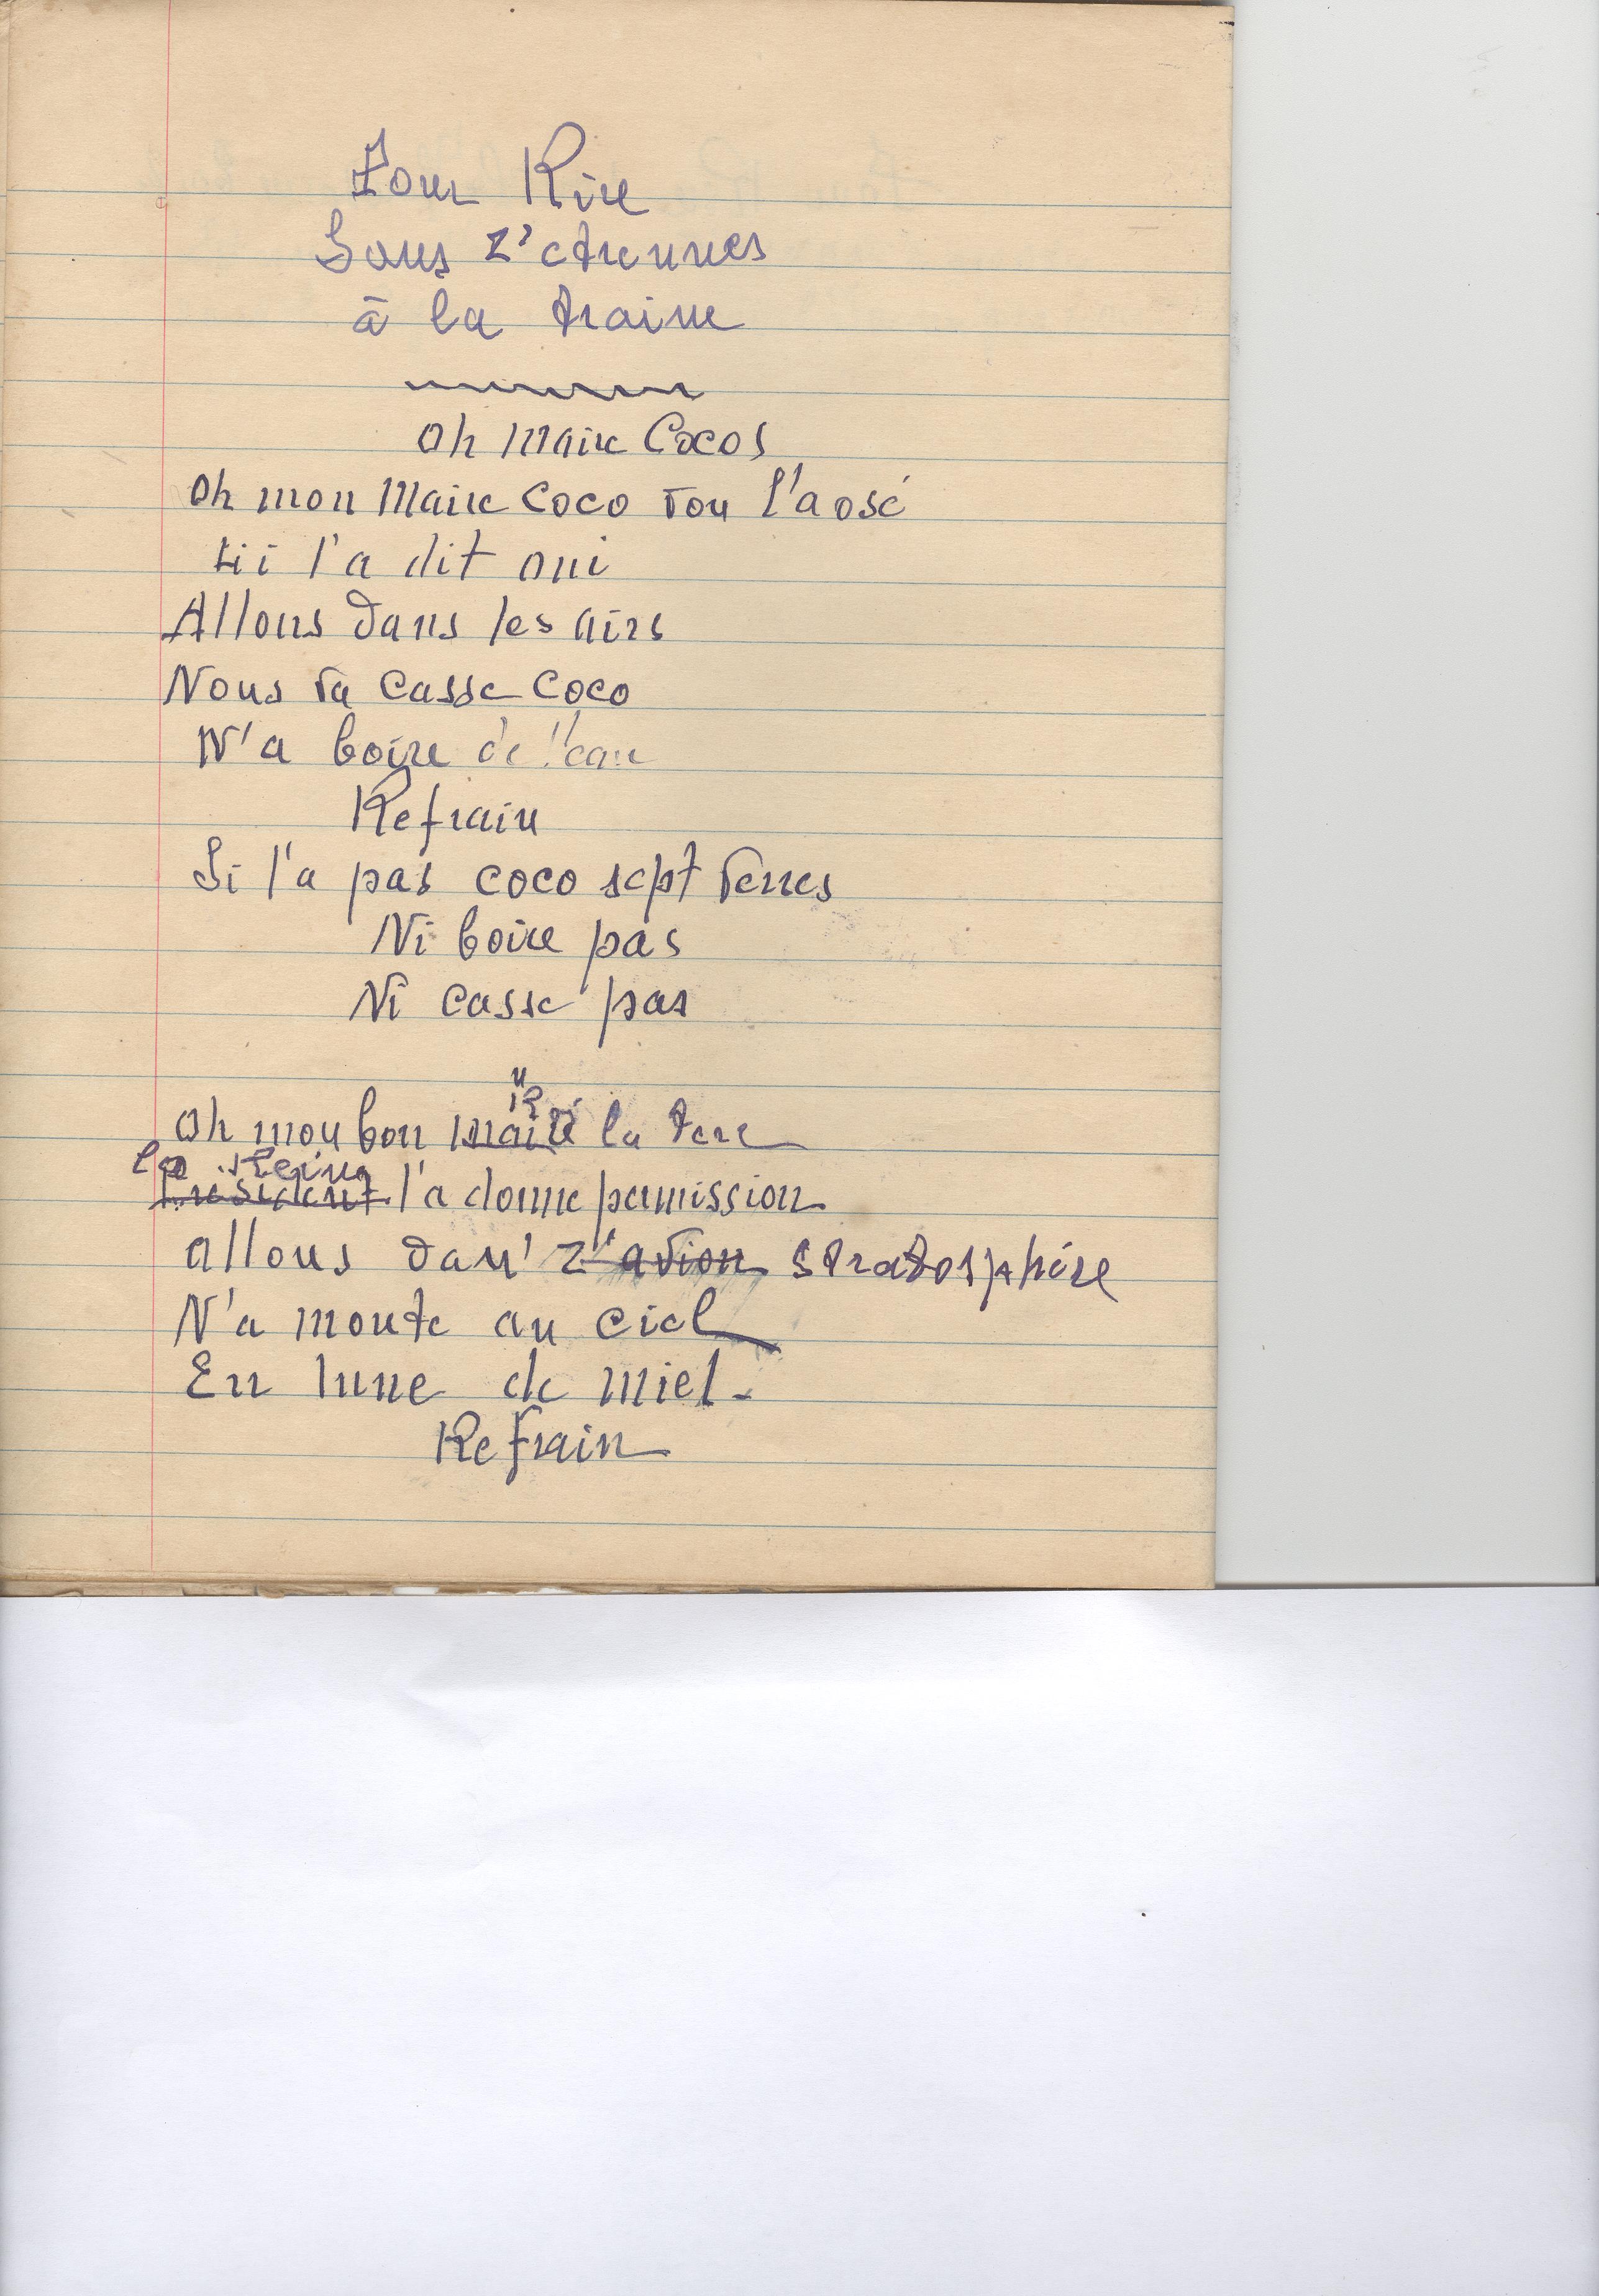 Pour Rire
Sans z'etrennes
à la traine
Oh Maire Cocos
Oh mon Maire Coco vou l'a osé
Li l'a dit oui
Allons dans les airs
Nous va casse coco
N'a boire de l'eau
Refrain
Si l'a pas coco sept verres
Ni boire pas
Ni casse pas
Oh mon bon la tere
La Reine
President l'a donne permission
allons dan' z'avion stratosphère
N'a monte au ciel
En lune de miel-
Refrain